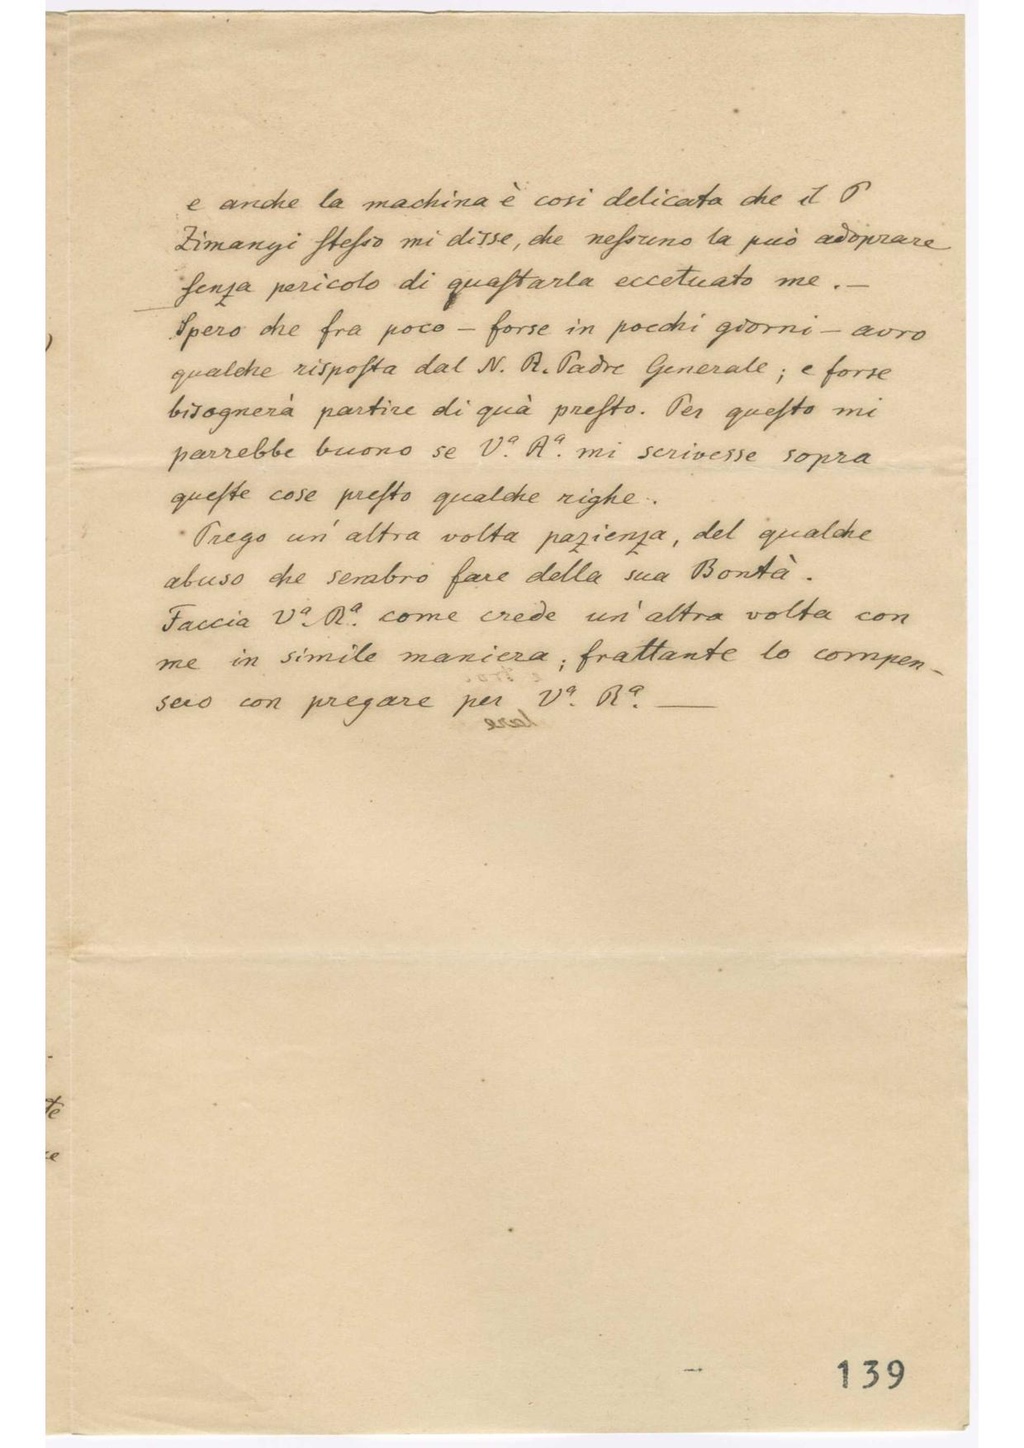 e anche la machina è cosi delicata che il P
Zimanyi stesso mi disse, che nessuno la può adoprare
senza pericolo di guastarla eccetuato me. —
Spero che fra poco — forse in pocchi giorni — avro
qualche risposta dal N. R. Padre Generale; e forse
bisognerà partire di quà presto. Per questo mi
parrebbe buono se Vª. Rª. mi scrivesse sopra
queste cose presto qualche righe.
Prego un' altra volta pazienza, del qualche
abuso che sembro fare della sua Bontà.
Faccia Vª. Rª. come crede un' altra volta con
me in simile maniera; frattante lo compen-
sero con pregare per Vª. Rª. —
139